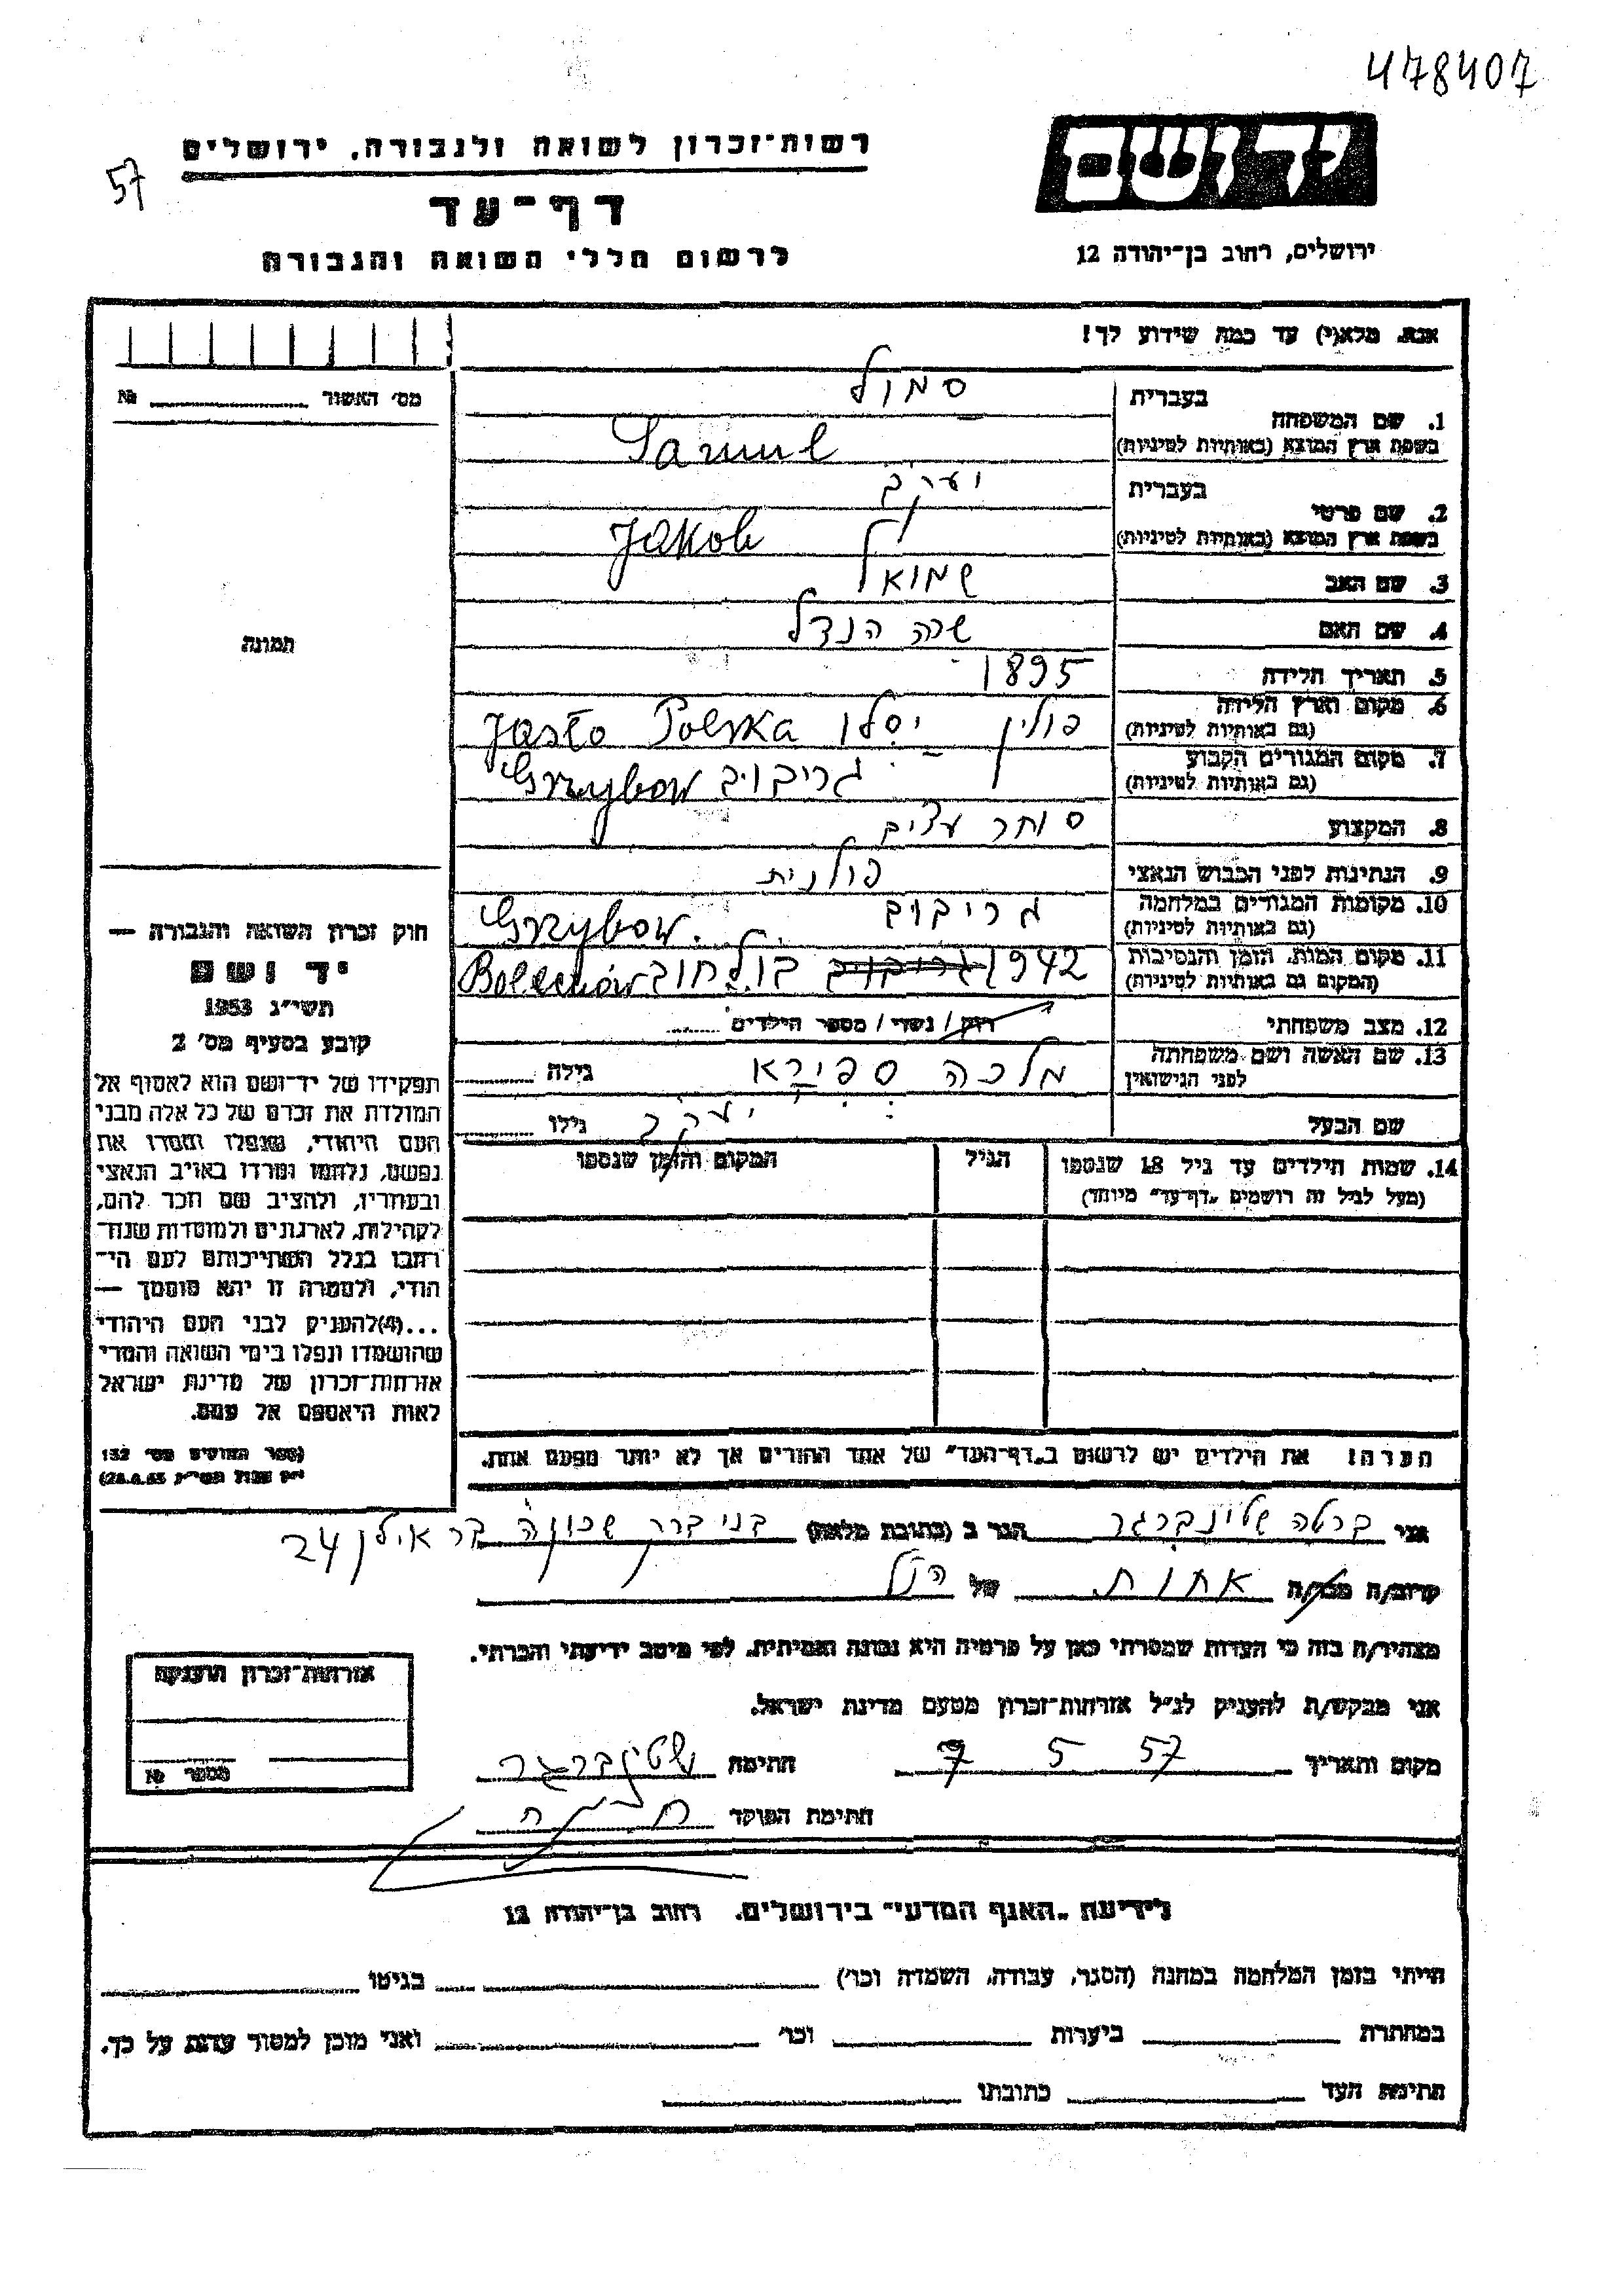 478407
57
רשות־זכרון לשואה ולגבורה, ירושלים
יד ושם
דף־עד
לרשום חללי השואה והגבורה
ירושלים, רחוב בן־יהודה 12
אנא, מלא(י) עד כמה שידוע לך!
מס׳ האשור № 
1. שם המשפחה
בעברית סמול
בשפת ארץ המוצא (באותיות לטיניות) Samul
2. שם פרטי
בעברית יעקב
בשפת ארץ המוצא (באותיות לטיניות) Jakob
3. שם האב שמואל
4. שם האם שרה הנדל
תמונה
5. תאריך הלידה 1895
6. מקום וארץ הלידה פולין יסלו Jasło Polska
(גם באותיות לטיניות)
7. מקום המגורים הקבוע גריבוב Grzybow
(גם באותיות לטיניות)
8. המקצוע סוחר עצים
9. הנתינות לפני הכבוש הנאצי פולנית
10. מקומות המגורים במלחמה גריבוב Grzybow.
(גם באותיות לטיניות)
11. מקום המות, הזמן והנסיבות 1942 בולחוב
(המקום גם באותיות לטיניות)
12. מצב משפחתי רווק / נשוי / מספר הילדים
13. שם האשה ושם משפחתה מלכה ספירא גילה
לפני הנישואין
שם הבעל יעקב גילו
14. שמות הילדים עד גיל 18 שנספו הגיל המקום והזמן שנספו
(מעל לגיל זה רושמים „דף־עד״ מיוחד)
הערה! את הילדים יש לרשום ב„דף־העד״ של אחד ההורים אך לא יותר מפעם אחת.
חוק זכרון השואה והגבורה —
יד ושם
תשי״ג 1953
קובע בסעיף מס׳ 2
תפקידו של יד־ושם הוא לאסוף אל
המולדת את זכרם של כל אלה מבני
העם היהודי, שנפלו ומסרו את
נפשם, נלחמו ומרדו באויב הנאצי
ובעוזריו, ולהציב שם וזכר להם,
לקהילות, לארגונים ולמוסדות שנח־
רבו בגלל השתייכותם לעם הי־
הודי, ולמטרה זו יהא מוסמך —
...(4)להעניק לבני העם היהודי
שהושמדו ונפלו בימי השואה והמרי
אזרחות־זכרון של מדינת ישראל
לאות היאספם אל עמם.
(ספר החוקים מס׳ 132
אני ברטה הגר ב (כתובת מלאה) בני ברק שכונה בר אילן 24
קרוב/ה מכר/ה אחות של הנ״ל
מצהיר/ה בזה כי העדות שמסרתי כאן על פרטיה היא נכונה ואמיתית, לפי מיטב ידיעתי והכרתי.
אני מבקש/ת להעניק לנ״ל אזרחות־זכרון מטעם מדינת ישראל.
מקום ותאריך 57 5 7 חתימה
חתימת הפוקד
אזרחות־זכרון הוענקה
מספר №
לידיעת „האגף המדעי״ בירושלים, רחוב בן־יהודה 12
הייתי בזמן המלחמה במחנה (הסגר, עבודה, השמדה וכו׳) בגיטו
במחתרת ביערות וכו׳ ואני מוכן למסור עדות על כך.
חתימת העד כתובתו